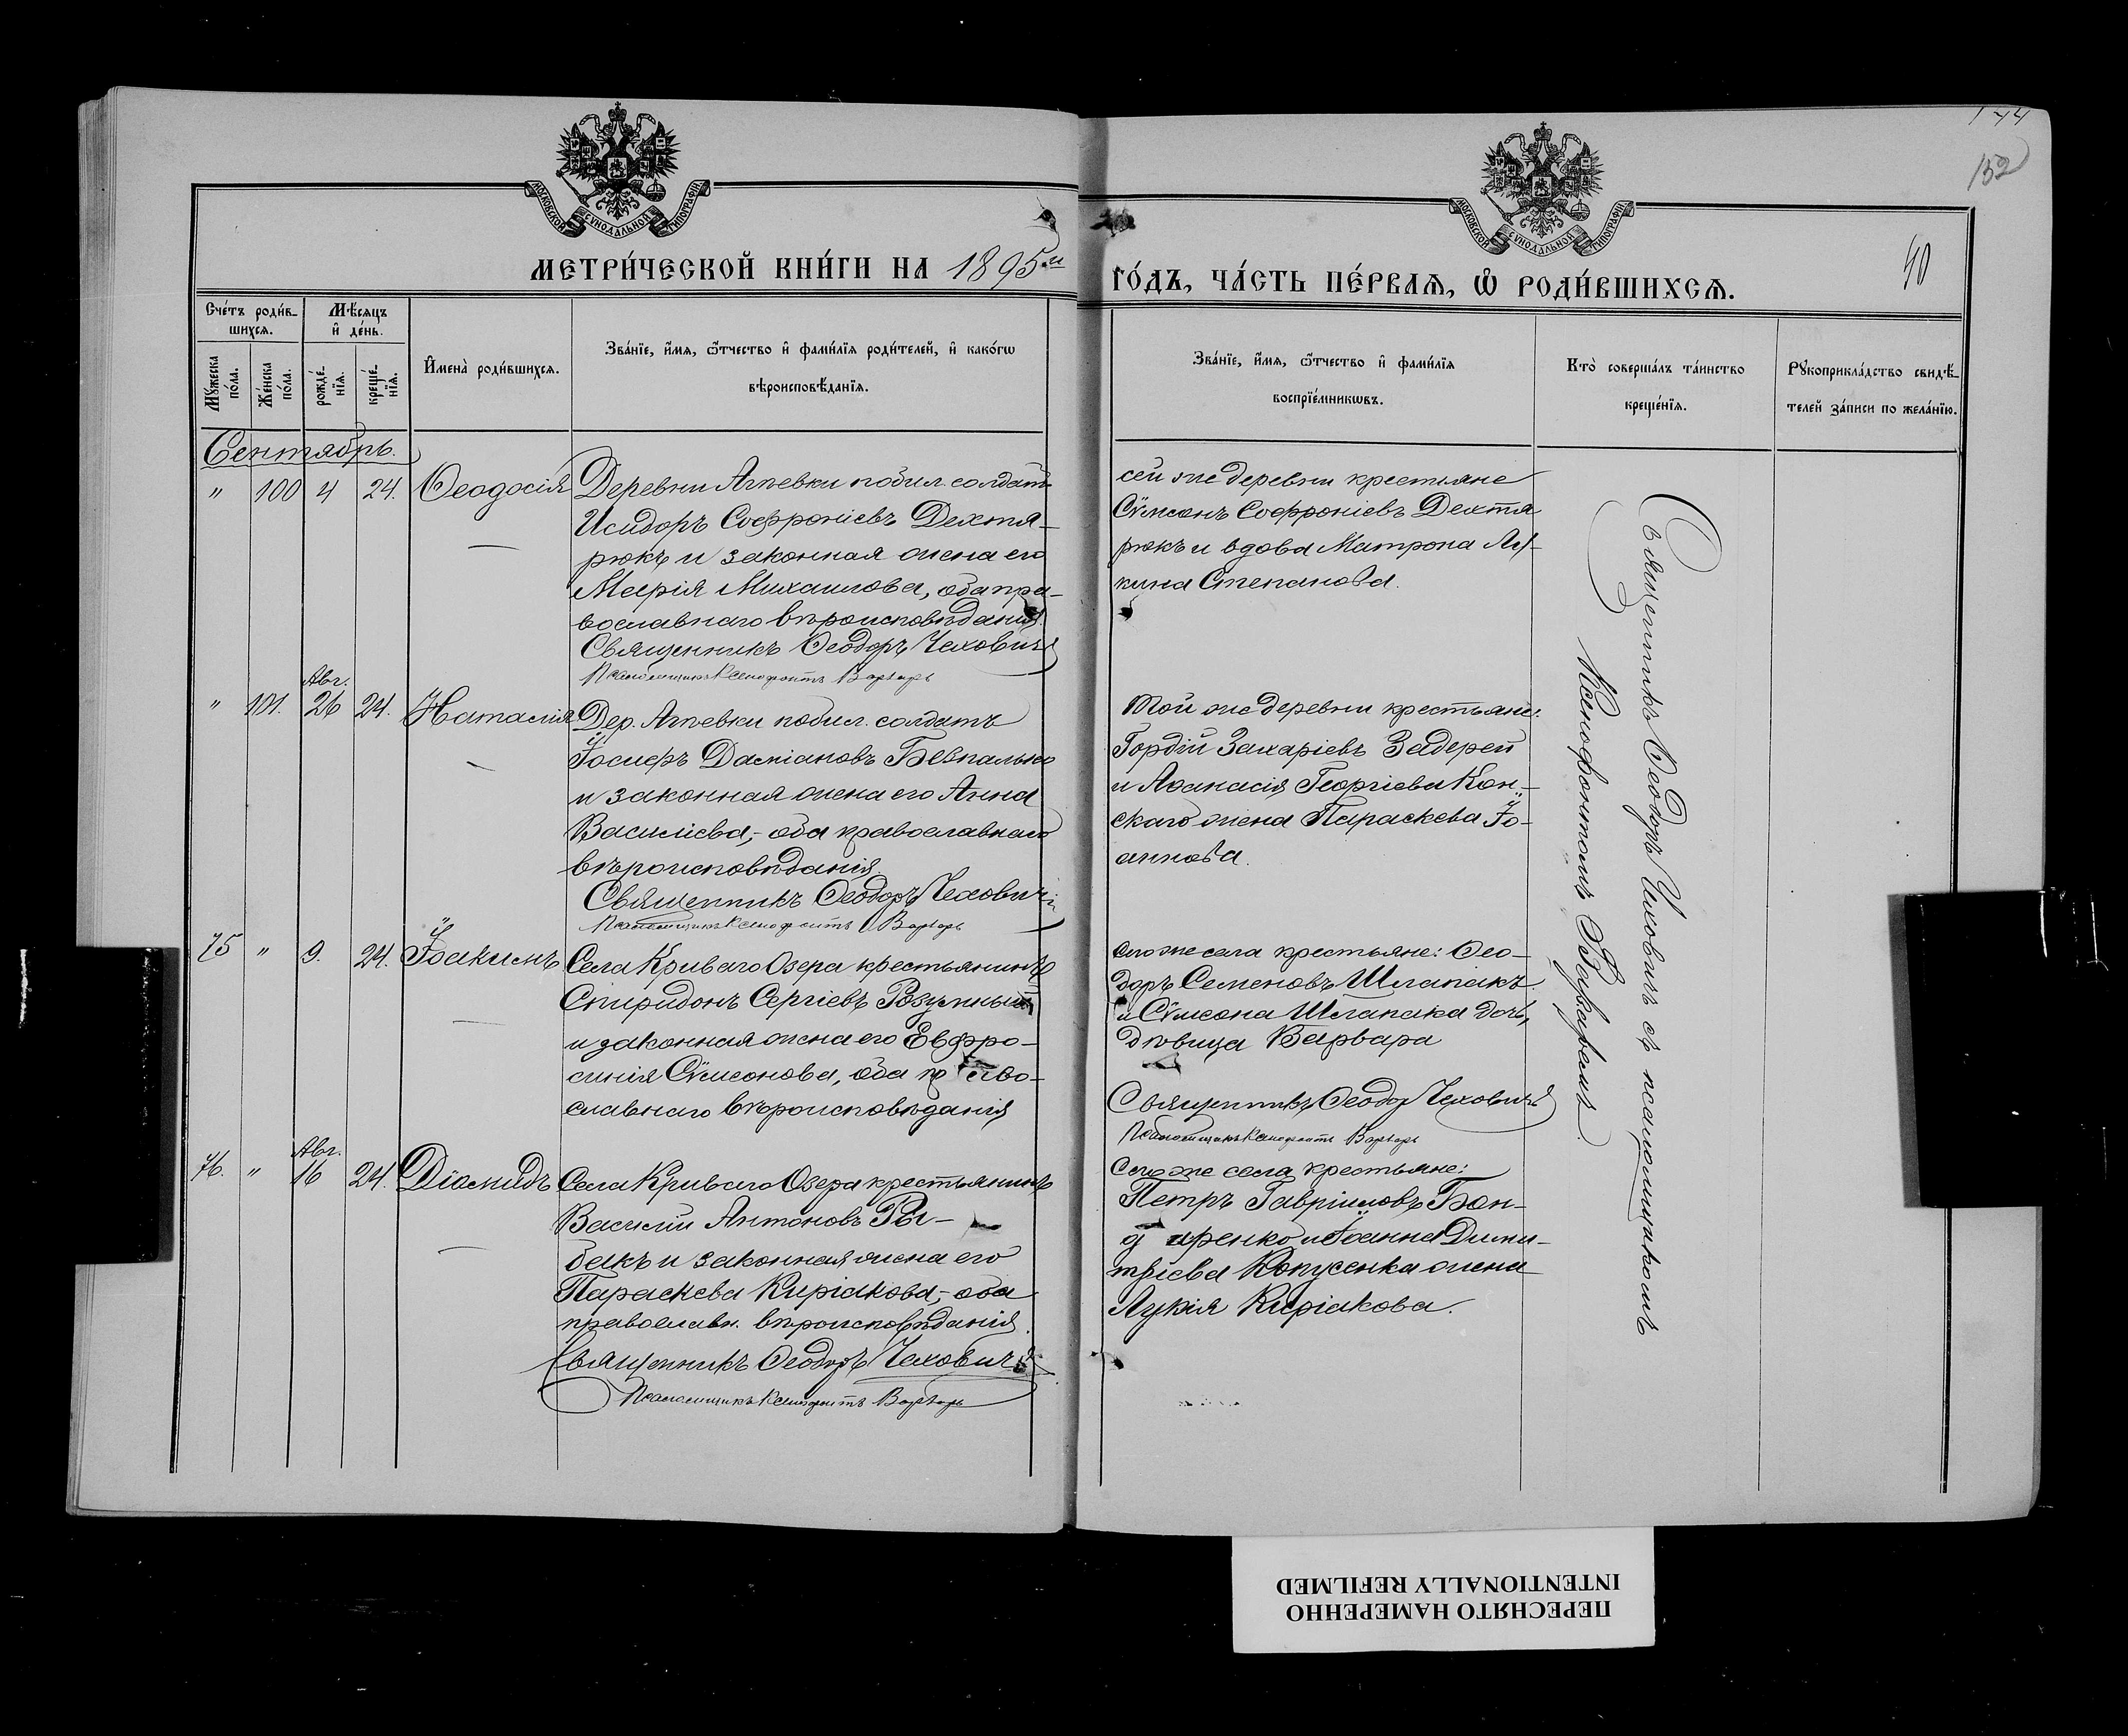 144
152
40
МОСКОВСКОЙ СѴНОДАЛЬНОЙ ТИПОГРАФІИ
МОСКОВСКОЙ СѴНОДАЛЬНОЙ ТИПОГРАФІИ
МЕТРИ́ЧЕСКОЙ КНИ́ГИ НА 1895й
ГО́ДЪ, ЧА́СТЬ ПЕ́РВАѦ, Ѡ҆ РОДИ́ВШИХСѦ.
Сче́тъ роди́в-
шихсѧ.
Мꙋ́жеска
по́ла.
Же́нска
по́ла.
Мѣ́сяцъ
и҆ де́нь.
рожде́-
нїѧ.
креще́-
нїѧ.
И҆мена̀ роди́вшихсѧ.
Зва́нїе, и҆́мѧ, ѻ҆́тчество и҆ фами́лїѧ роди́телей, и҆ како́гѡ
вѣроисповѣ́данїѧ.
Зва́нїе, и҆́мѧ, ѻ҆́тчество и҆ фами́лїѧ
воспрїе́мникѡвъ.
Кто̀ соверша́лъ та́инство
креще́нїѧ.
Рꙋкоприкла́дство свидѣ́-
телей за́писи по жела́нїю.
Сентябрь.
" 100 4 24. Ѳеодосія
Деревни Агѣевки побил. солдатъ
Исидоръ Софроніевъ Дехтя-
рюкъ и законная жена его
Марія Михаилова, оба пра-
вославнаго вѣроисповѣданія.
Священникъ Ѳеодоръ Чеховичъ
Псаломщикъ Ксенофонтъ Варваръ
сей же деревни крестьяне
Сѵмеонъ Софроніевъ Дехтя
рюкъ и вдова Матрона Лу-
кина Степанова.
" 101. Авг. 26 24. Наталія
Дер. Агѣевки побил. солдатъ
Іосифъ Даміановъ Безпалько
и законная жена его Анна
Василіева,- оба православнаго
вѣроисповѣданія.
Священникъ Ѳеодоръ Чеховичъ
Псаломщикъ Ксенофонтъ Варваръ
той же деревни крестьяне:
Гордій Захаріевъ Задерей
и Аѳанасія Георгіева Кон-
скаго жена Параскева Іо-
аннова.
75 " 9. 24. Іоакимъ
Села Криваго Озера крестьянинъ
Спиридонъ Сергіевъ Розумный
и законная жена его Евфро-
синія Сѵмеонова, оба право-
славнаго вѣроисповѣданія
сего же села крестьяне: Ѳео-
доръ Семеновъ Шлапакъ
и Сѵмеона Шлапака дочь,
дѣвица Варвара
Священникъ Ѳеодоръ Чеховичъ
Псаломщикъ Ксенофонтъ Варваръ
76. " Авг. 16 24. Діомидъ
Села Криваго Озера крестьянинъ
Василій Антоновъ Ры-
бакъ и законная жена его
Параскева Киріакова,- оба
православн. вѣроисповѣданія.
Священникъ Ѳеодоръ Чеховичъ
Псаломщикъ Ксенофонтъ Варваръ
Сего же села крестьяне:
Петръ Гавріиловъ Бон-
даренко и Іоанна Дими-
тріева Копусенка жена
Лукія Киріакова.
Священникъ Ѳеодоръ Чеховичъ съ псаломщикомъ
Ксенофонтомъ Варваремъ.
ПЕРЕСНЯТО НАМЕРЕННО
INTENTIONALLY REFILMED